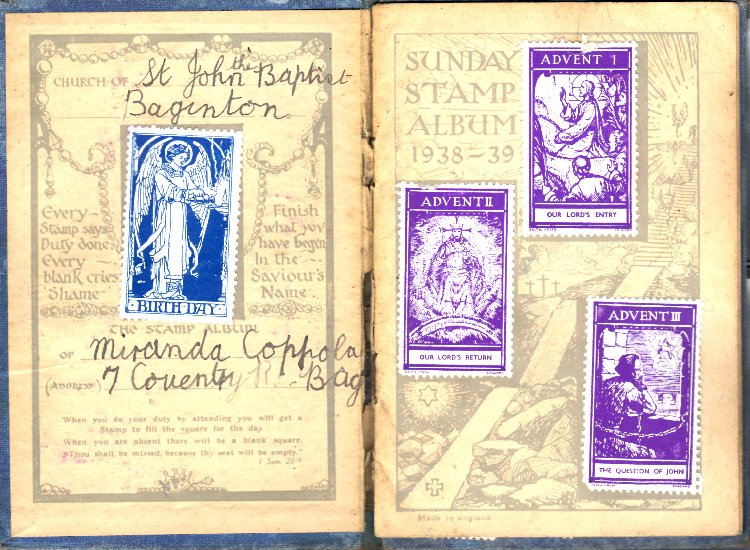 CHURCH OF St John the Baptist
Baginton
Every
Stamp says
Duty done
Every
blank cries
Shame
BIRTHDAY
Finish
what you
have begun
In the
Saviour's
Name
THE STAMP ALBUM
OF Miranda Coppola
(ADDRESS) 7 Coventry R Bag
When you do your duty by attending you will get a
Stamp to fill the square for the day.
When you are absent there will be a blank square.
"Thou shalt be missed, because thy seat will be empty."
1 Sam. 20
SUNDAY
STAMP
ALBUM
1938-39
ADVENT I
OUR LORD'S ENTRY
ADVENT II
OUR LORD'S RETURN
ADVENT III
THE QUESTION OF JOHN
Made in England